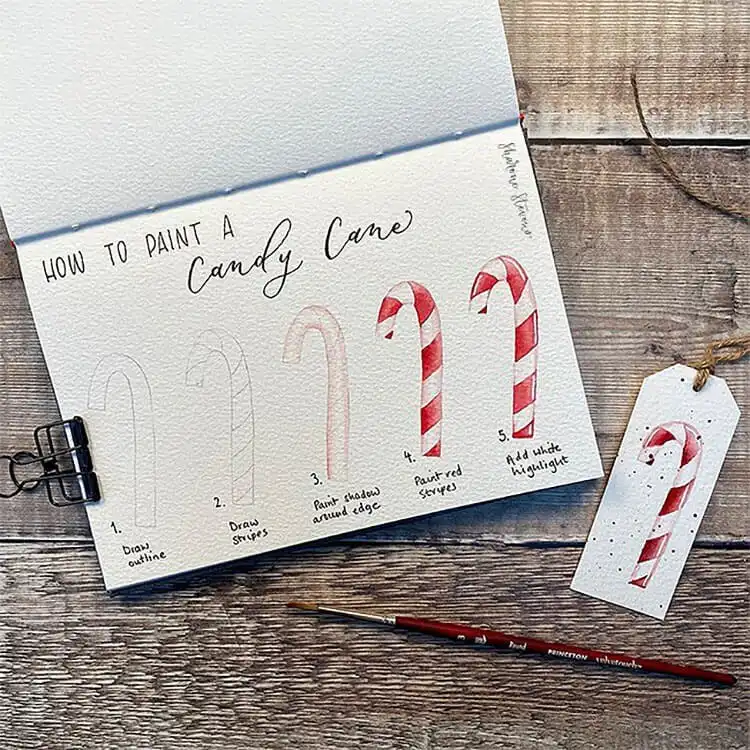 HOW TO PAINT A
Candy Cane
Sharone Stevens
1.
Draw
outline
2.
Draw
stripes
3.
Paint shadow
around edge
4.
Paint red
stripes
5.
Add white
highlight
3 Round PRINCETON velvetouch